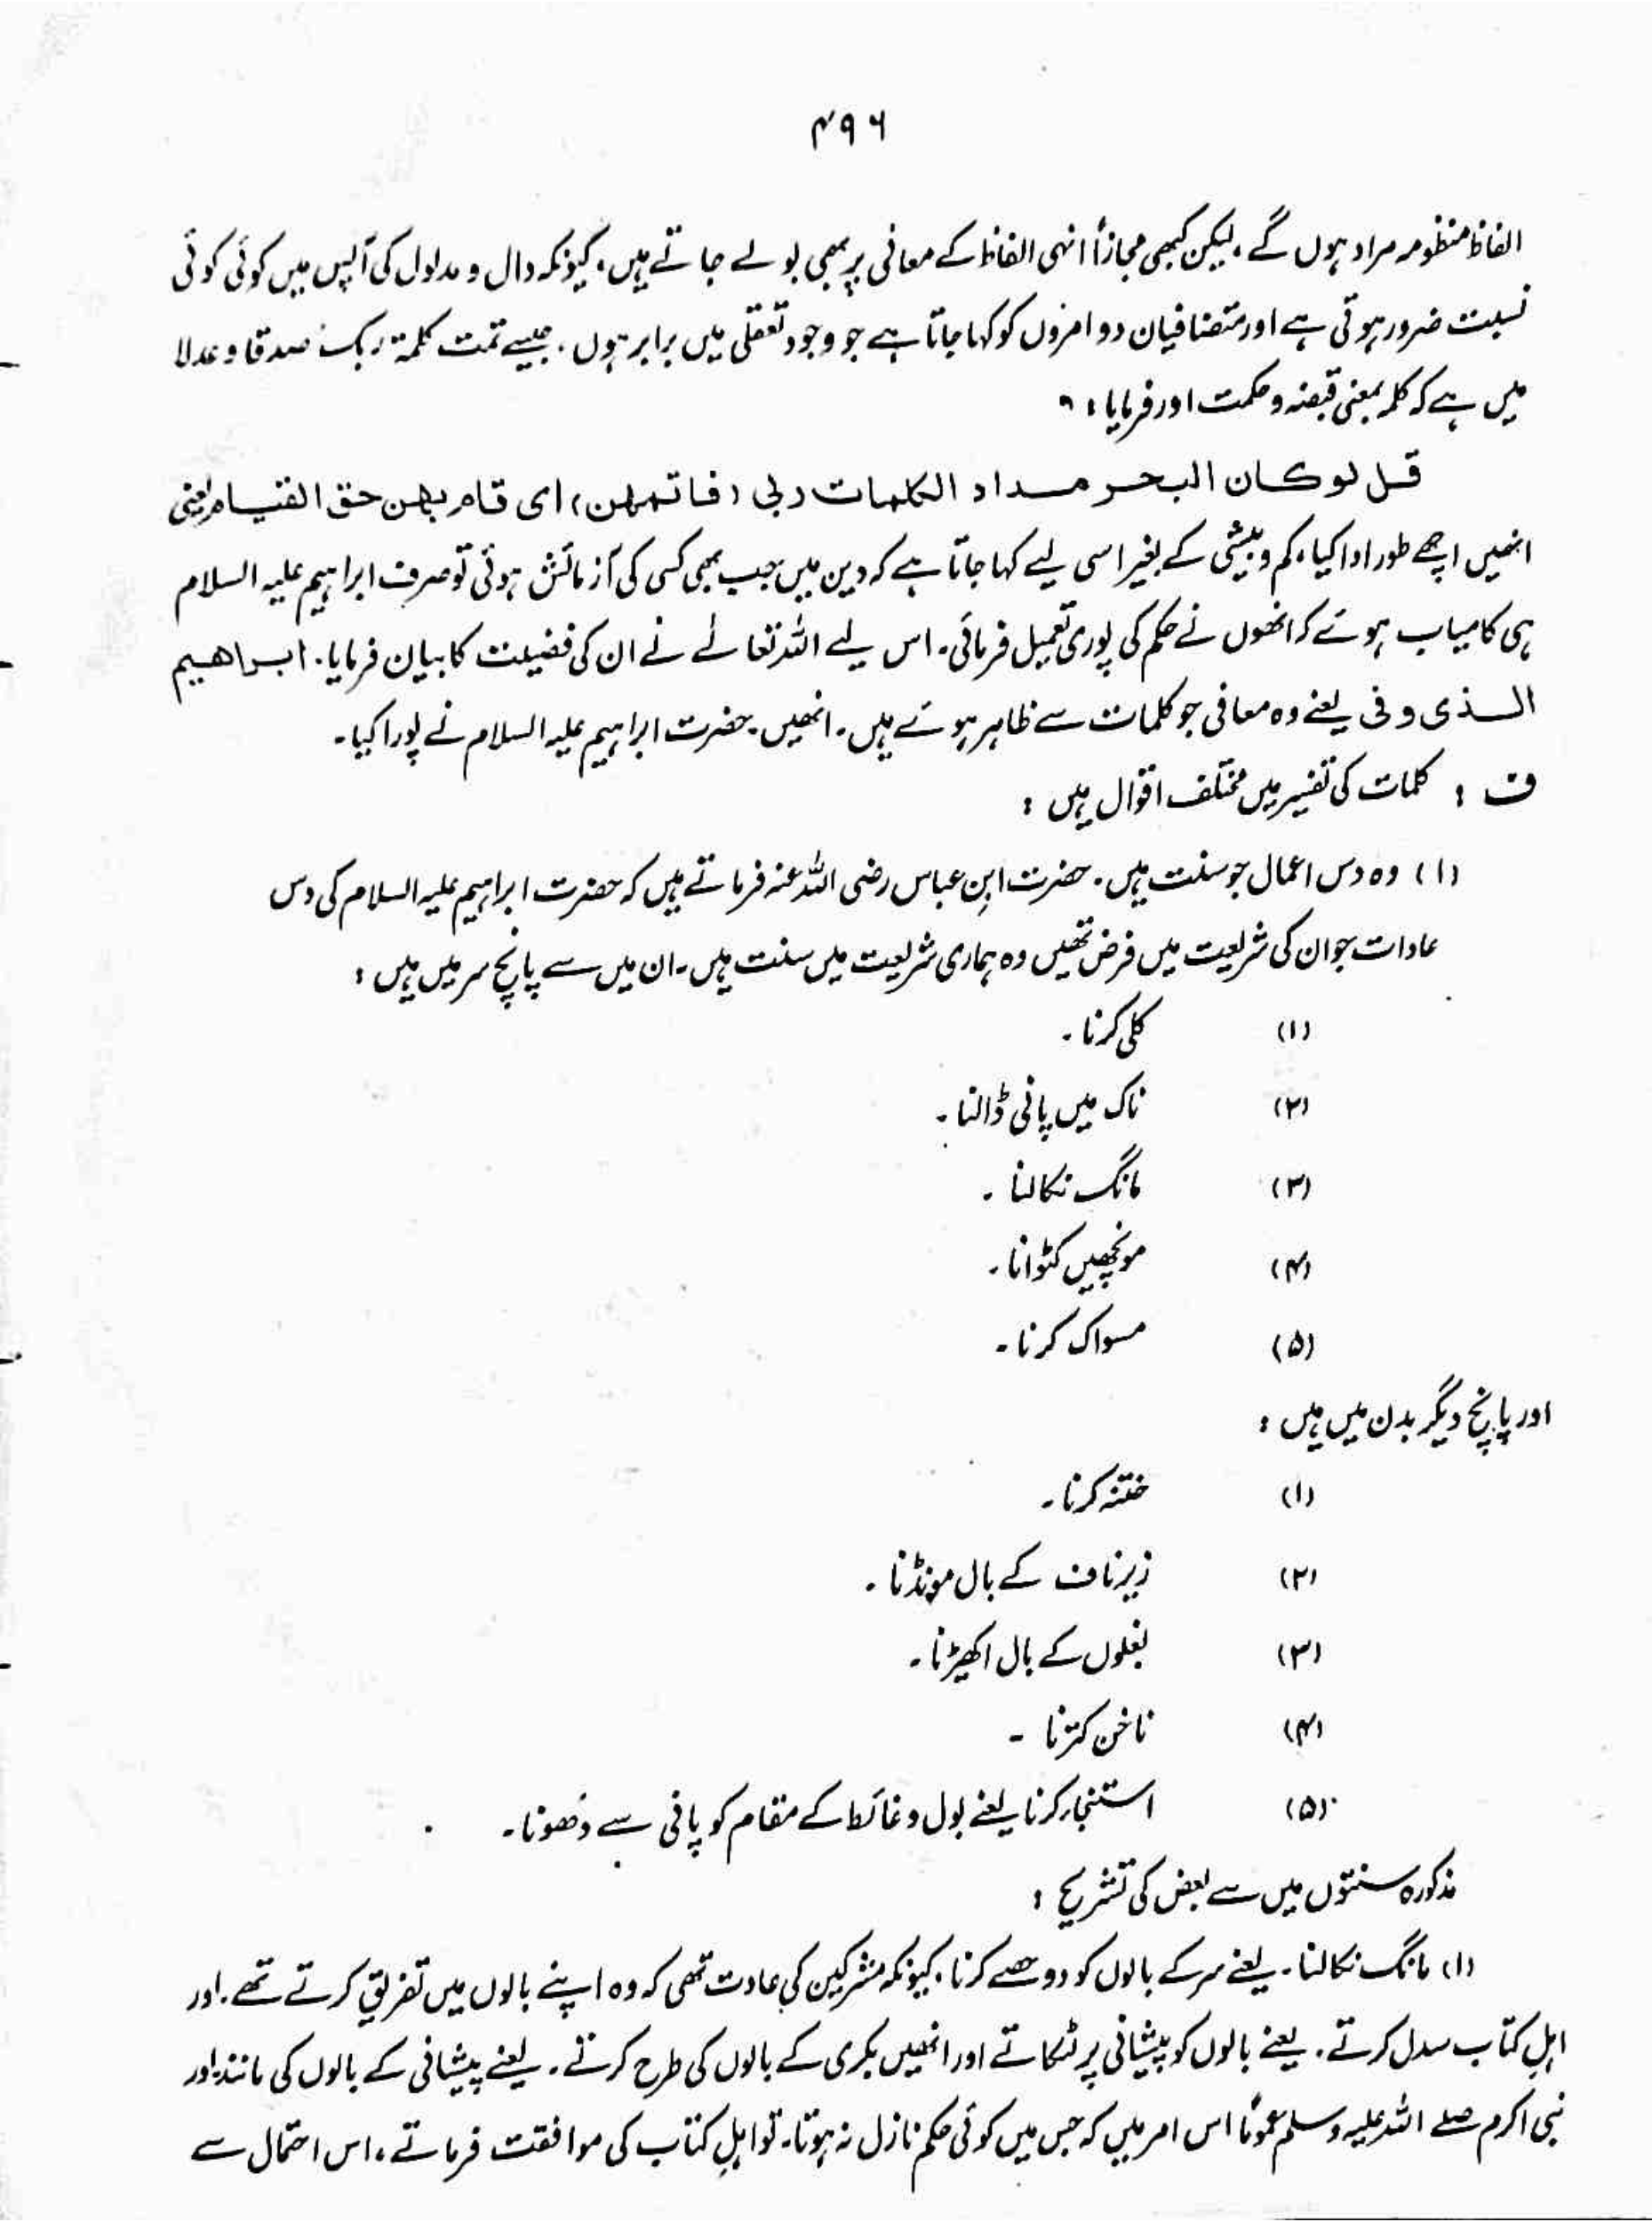 ۴۹۶
الفاظ منظومہ مراد ہوں گے، لیکن کبھی مجازاً انہی الفاظ کے معانی پر بھی بولے جاتے ہیں، کیونکہ دال و مدلول کی آپس میں کوئی کوئی
نسبت ضرور ہوتی ہے اور متضافیان دو امروں کو کہا جاتا ہے جو وجود تعقلی میں برابر ہوں۔ جیسے تمت کلمۃ ربک صدقا و عدلا
میں ہے کہ کلمہ بمعنی قبضہ و حکمت اور فرمایا :
قل لو کان البحر مداد الکلمات ربی (فاتمهن) ای قام بهن حق القیام یعنی
انھیں اچھے طور ادا کیا، کم و بیشی کے بغیر اسی لیے کہا جاتا ہے کہ دین میں جب بھی کسی کی آزمائش ہوئی تو صرف ابراہیم علیہ السلام
ہی کامیاب ہوئے کہ انھوں نے حکم کی پوری تعمیل فرمائی۔ اس لیے اللہ تعالےٰ نے ان کی فضیلت کا بیان فرمایا۔ ابراھیم
الذی وفی یعنے وہ معافی جو کلمات سے ظاہر ہوئے ہیں۔ انھیں حضرت ابراہیم علیہ السلام نے پورا کیا۔
ف : کلمات کی تفسیر میں مختلف اقوال ہیں :
(۱) وہ دس اعمال جو سنت ہیں۔ حضرت ابنِ عباس رضی اللہ عنہ فرماتے ہیں کہ حضرت ابراہیم علیہ السلام کی دس
عادات جو ان کی شریعت میں فرض تھیں وہ ہماری شریعت میں سنت ہیں۔ ان میں سے پانچ سر میں ہیں :
(۱) کلی کرنا۔
(۲) ناک میں پانی ڈالنا۔
(۳) مانگ نکالنا۔
(۴) مونچھیں کٹوانا۔
(۵) مسواک کرنا۔
اور پانچ دیگر بدن میں ہیں :
(۱) ختنہ کرنا۔
(۲) زیر ناف کے بال مونڈنا۔
(۳) بغلوں کے بال اکھیڑنا۔
(۴) ناخن کترنا۔
(۵) استنجا کرنا یعنے بول و غائط کے مقام کو پانی سے دھونا۔
مذکورہ سنتوں میں سے بعض کی تشریح :
(۱) مانگ نکالنا۔ یعنے سر کے بالوں کو دو حصے کرنا، کیونکہ مشرکین کی عادت تھی کہ وہ اپنے بالوں میں تفریق کرتے تھے۔ اور
اہلِ کتاب سدل کرتے۔ یعنے بالوں کو پیشانی پر لٹکاتے اور انھیں بکری کے بالوں کی طرح کرتے۔ یعنے پیشانی کے بالوں کی مانند اور
نبی اکرم صلے اللہ علیہ وسلم عموماً اس امر میں کہ جس میں کوئی حکم نازل نہ ہوتا۔ تو اہلِ کتاب کی موافقت فرماتے، اس احتمال سے